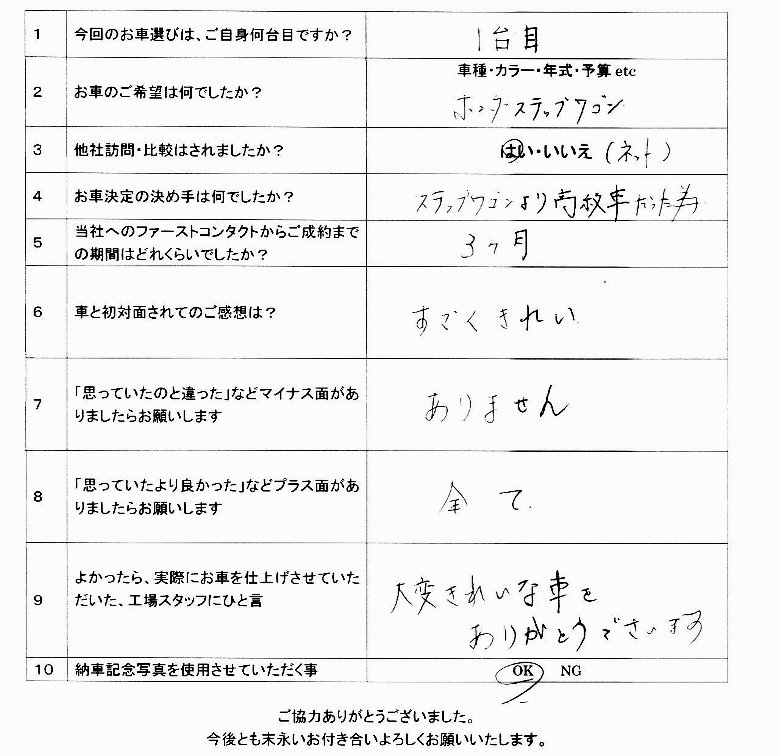 1 今回のお車選びは、ご自身何台目ですか? 1台目
車種・カラー・年式・予算 etc
2 お車のご希望は何でしたか? ホンダ ステップワゴン
3 他社訪問・比較はされましたか? はい・いいえ (ネット)
4 お車決定の決め手は何でしたか? ステップワゴンより高級車だった事
5 当社へのファーストコンタクトからご成約まで
の期間はどれくらいでしたか? 3ヶ月
6 車と初対面されてのご感想は? すごくきれい
7 「思っていたのと違った」などマイナス面があ
りましたらお願いします ありません
8 「思っていたより良かった」などプラス面があ
りましたらお願いします 全て
9 よかったら、実際にお車を仕上げさせていた
だいた、工場スタッフにひと言
大変きれいな車を
ありがとうございます
10 納車記念写真を使用させていただく事 OK NG
ご協力ありがとうございました。
今後とも末永いお付き合いよろしくお願いいたします。